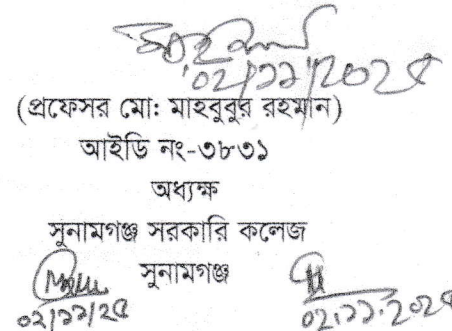 ০২/১১/২০২৫
(প্রফেসর মো: মাহবুবুর রহমান)
আইডি নং-৩৮৩১
অধ্যক্ষ
সুনামগঞ্জ সরকারি কলেজ
সুনামগঞ্জ
০২/১১/২৫
০২.১১.২০২৫